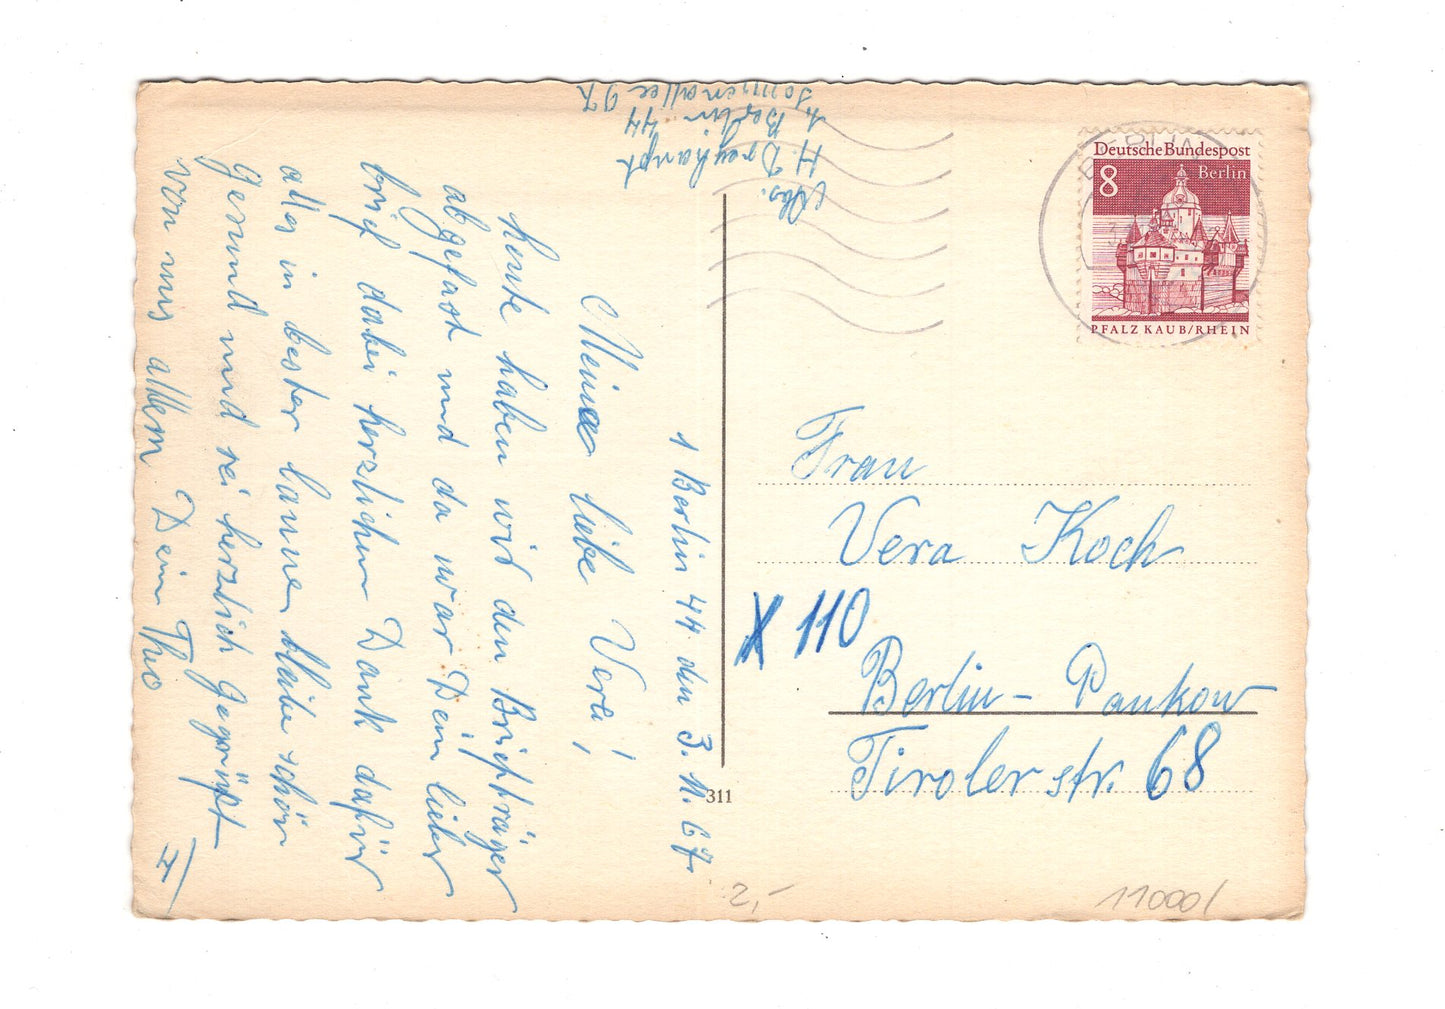 Abs.
H. Dreyhaupt
1. Berlin 44
Sonnenallee 97
1 Berlin 44 den 3. 11. 67.
Meine liebe Vera!
heute haben wir den Briefträger
abgefasst und da war Dein lieber
brief dabei herzlichen Dank dafür
alles in bester laune bleibe schön
gesund und sei herzlich gegrüßt
von mir allem Dein Theo
Deutsche Bundespost
8 Berlin
PFALZ KAUB/RHEIN
BERLIN
Frau
Vera Koch
X 110
Berlin - Pankow
Tiroler str. 68
311
2,-
11000/